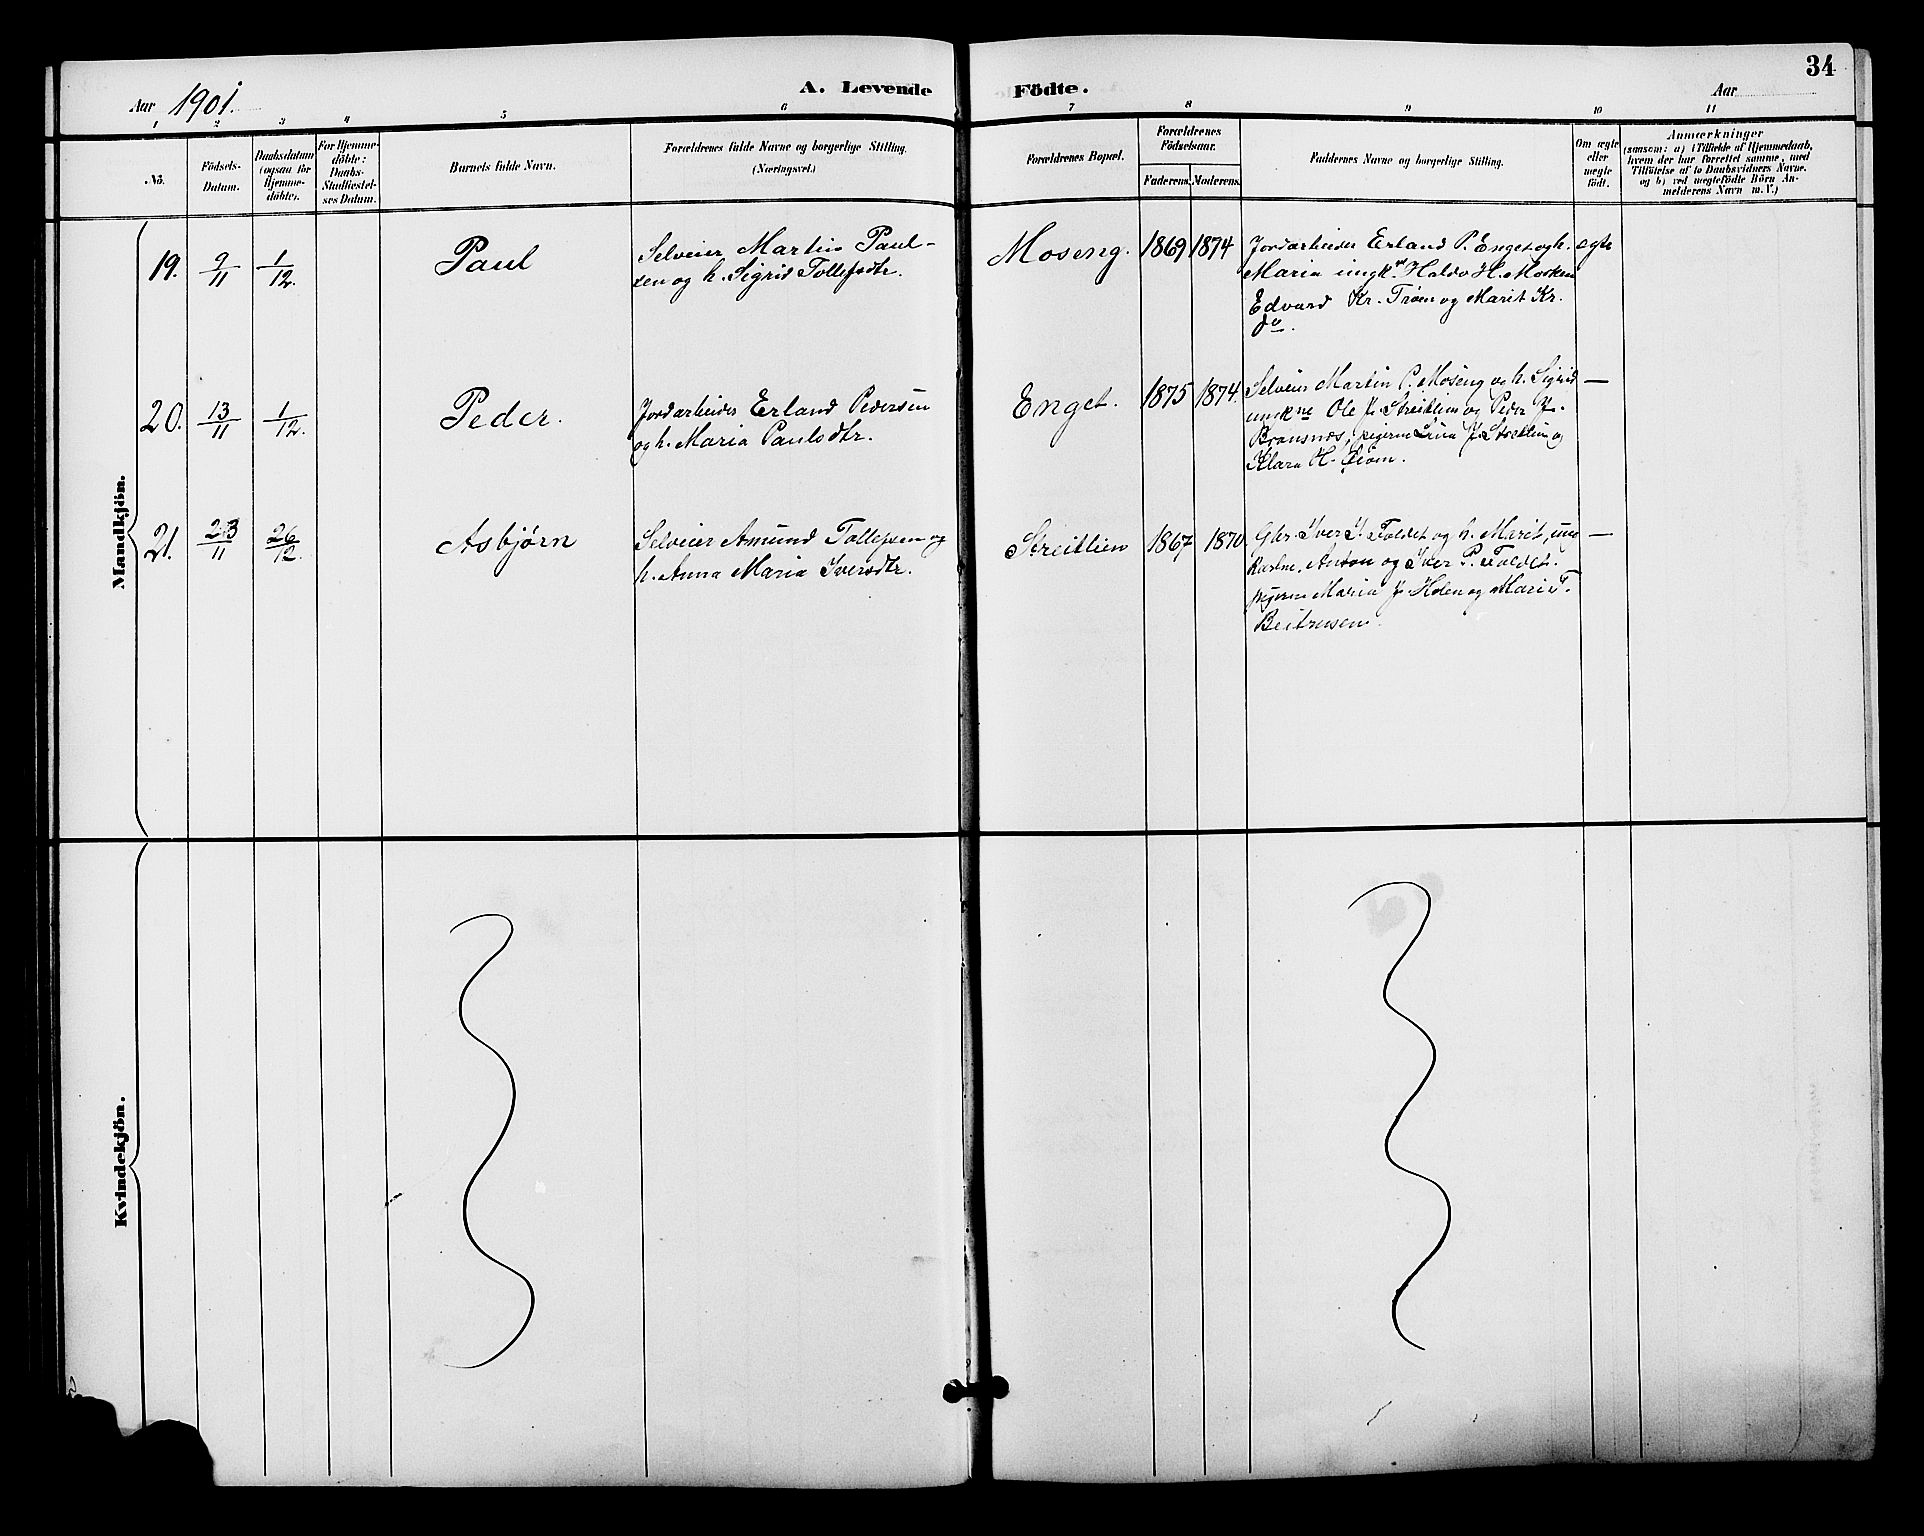 34
Aar 1901.
A. Levende
Födte.
Aar
1 2 3 4 5 6 7 8 9 10 11
No.
Födsels-
Datum.
Daabsdatum
(ogsaa for
Hjemme-
döbte).
For Hjemme-
döbte:
Daabs-
Stadfæstel-
ses Datum.
Barnets fulde Navn.
Forældrenes fulde Navne og borgerlige Stilling.
(Næringsvei.)
Forældrenes Bopæl.
Forældrenes
Födselsaar.
Faderens. Moderens.
Faddernes Navne og borgerlige Stilling.
Om ægte
eller
uægte
födt.
Anmærkninger
(saasom: a) i Tilfælde af Hjemmedaab,
hvem der har forrettet samme, med
Tilföielse af to Daabsvidners Navne.
og b) ved uægtefödte Börn An-
melderens Navn m. V.)
Mandkjön.
19. 9/11 1/12. Paul
Selveier Martin Paul-
sen og h. Sigrid Tollefsdtr.
Moseng. 1869 1874
Jordarbeider Erland P. Enget og h.
Maria ungk. Haldo H. Morken
Edvard Kr. Trøen og Marit Kr.
do.
ægte
20. 13/11 1/12. Peder.
Jordarbeider Erland Pedersen
og h. Maria Paulsdtr.
Enget. 1875 1874.
Selveier Martin P. Moseng og h. Sigrid
ungkne Ole J. Streitlien og Peder J.
Brænsnos, pigerne J. Streitlien og
Klara H.
—
21. 23/11 26/12. Asbjørn
Selveier Amund Tollefsen og
h. Anna Maria Iversdtr.
Streitlien 1867 1870.
Gbr. Iver I. Foldet og h. Marit, ung-
karlne. Anton og Iver P. Foldet.
pigerne Maria J. Holen og Marit T.
—
Kvindekjön.